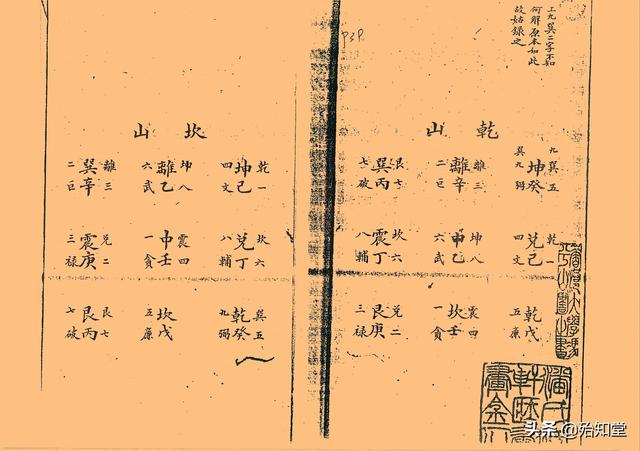 上九巽二字不知
何解原本如此
故姑錄之
乾山
九巽五
坤癸
巽九弼
離三
離辛
二巨
艮七
巽丙
七破
乾一
兌己
四文
坤八
中乙
六武
坎六
震丁
八輔
乾戊
五廉
震四
坎壬
一貪
兌二
艮庚
三禄
坎山
乾一
坤己
四文
坤八
離乙
六武
離三
巽辛
二巨
坎六
兌丁
八輔
震四
中壬
一貪
兌二
震庚
三禄
巽五
乾癸
九弼
坎戊
五廉
艮七
艮丙
七破
头条 @殆知堂